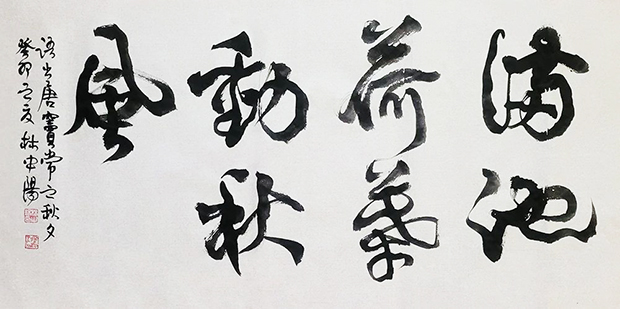 满池
荷叶
動秋
風
语出唐窦常之秋夕
癸卯之夏林中陽